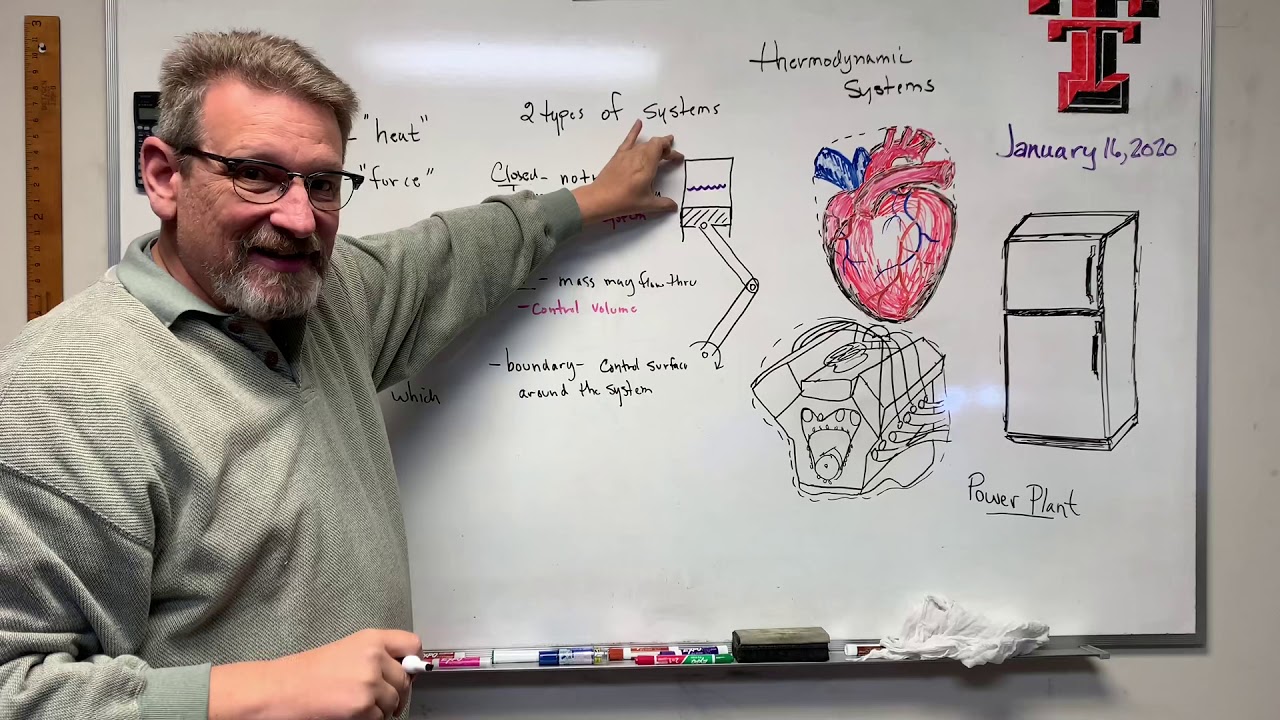 Thermodynamic
Systems
January 16, 2020
2 types of systems
"heat"
"force"
Closed -
- mass may flow thru
- Control volume
- boundary - Control surface
around the system
which
Power Plant